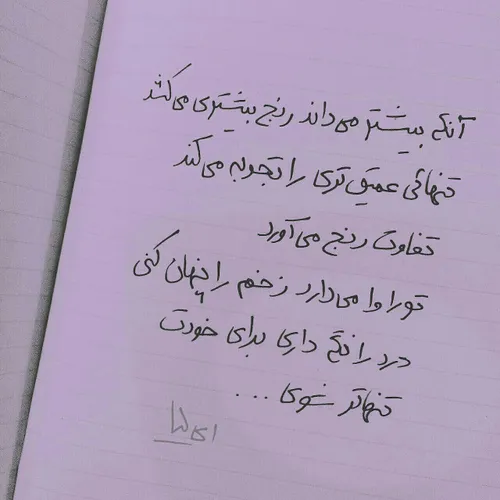 آنکه بیشتر می‌داند رنج بیشتری می‌کشد
تنهائی عمیق‌تری را تجربه می‌کند
تفاوت رنج می‌آورد
تو را وا می‌دارد زخم را پنهان کنی
درد را نگه داری برای خودت
تنهاتر شوی ...